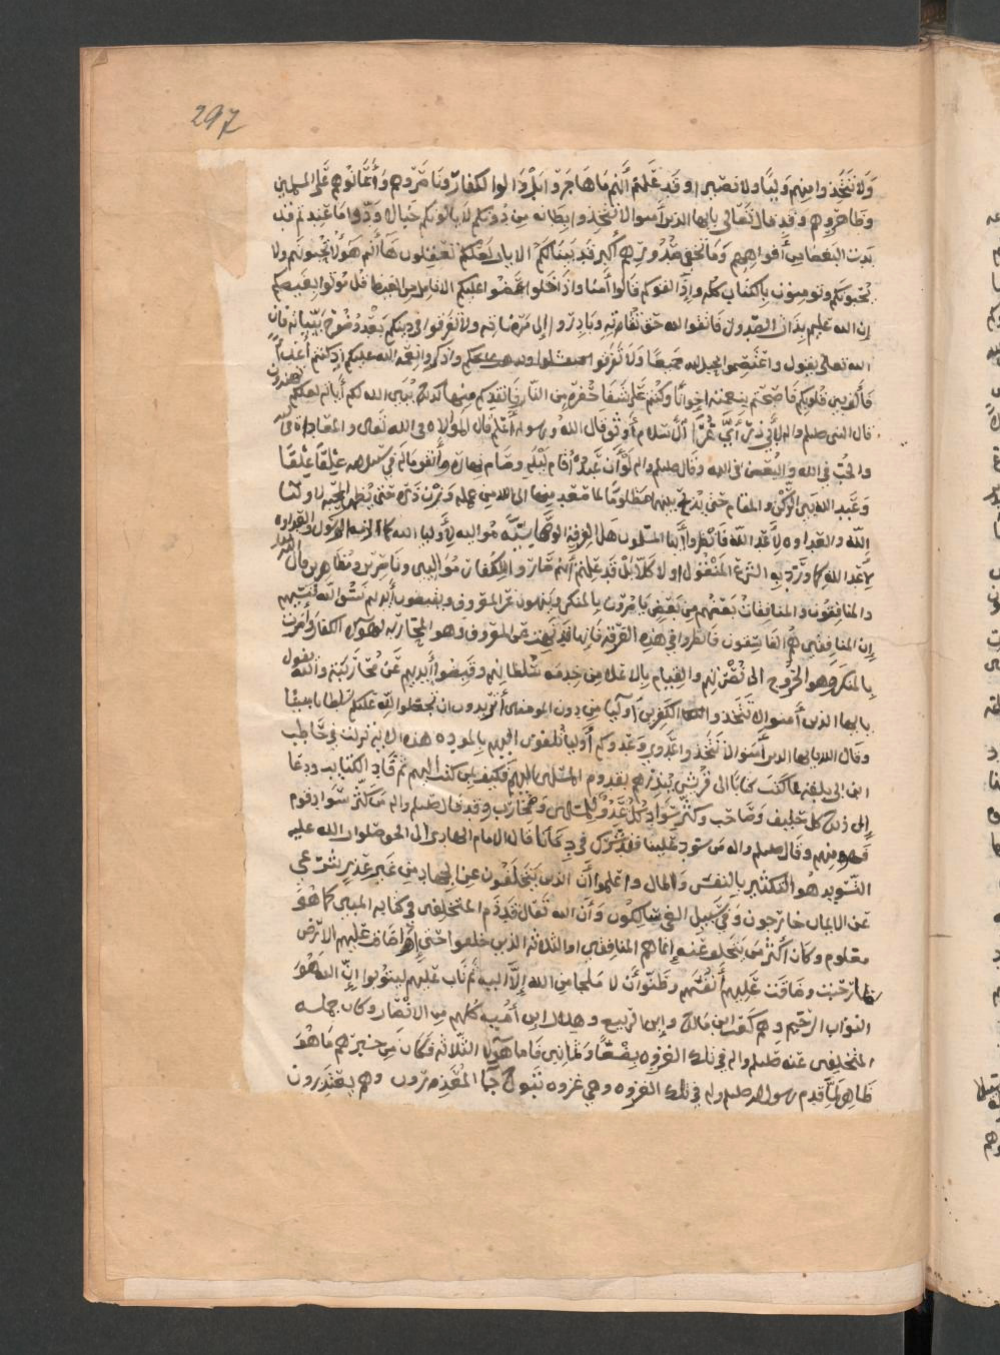 297
ولا تتخذوا منهم وليا ولا نصيرا وقد علمتم أنهم ما هاجروا بل والوا الكفار وناصروهم وأعانوهم على المسلمين
وظاهروهم وقد قال تعالى يايها الذين آمنوا لا تتخذوا بطانة من دونكم لا يالونكم خبالا ودوا ما عنتم قد
بدت البغضا من أفواههم وما تخفي صدورهم أكبر قد بينا لكم الايات لعلكم تعقلون هاأنتم هؤلا تحبونهم ولا
يحبونكم وتومنون بالكتاب كله وإذا لقوكم قالوا آمنا واذا خلوا عضوا عليكم الانامل من الغيظ قل موتوا بغيضكم
إن الله عليم بذات الصدور فاتقوا الله حق تقاته وبادروا إلى مرضاته ولا تفرقوا في دينكم بعد وضوح بيانه فان
الله تعالى يقول واعتصموا بحبل الله جميعا ولا تفرقوا واذكروا نعمة الله عليكم إذ كنتم أعدآ
فألف بين قلوبكم فاصبحتم بنعمته اخوانا وكنتم على شفا حفرة من النار فانقذكم منها كذلك يبين الله لكم أياته لعلكم تهتدون
قال النبي صلعم واله لأبي ذر أي عرا الاسلام أوثق قال الله ورسوله أعلم قال الموالاه في الله تعالى والمعاداه في الله
والحب في الله والبغض في الله وقال صلعم واله لو أن عبدا قام ليله وصام نهاره وأنفق ماله في سبيل الله علقا علقا
وعبد الله بين الركن والمقام حتى يذبح بينهما مظلوما لما صعد الى الله من عمله وزن ذره حتى يظهر المحبه لاوليا
الله والعداوه لأعدا الله فانظروا أيها المسلمون هذا الفرقة
لأعدا الله كما ورد به الشرع المنقول او لا كلا بل قد علمتم أنهم صاروا للكفار موالين وناصرين ومظاهرين وقال الله
والمنافقون والمنافقات بعضهم من بعض يامرون بالمنكر وينهون عن المعروف ويقبضون أيديهم نسوا الله فنسيهم
إن المنافقين هم الفاسقون فانظروا في هذه الفرقه فانها قد نهت عن المعروف وهو المحاربه لهؤلاء الكفار وأمرت
بالمنكر وهو الخروج الى نصرتهم والقيام بالاعلا من خدمه سلطانهم وقبضوا أيديهم عن محاربته والله يقول
يايها الذين آمنوا لا تتخذوا الكفرين أوليا من دون المومنين أتريدون ان تجعلوا لله عليكم سلطانا مبينا
وقال الله يايها الذين آمنوا لا تتخذوا عدوي وعدوكم أوليا تلقون اليهم بالموده هذه الايه نزلت في حاطب
ابن ابي بلتعه لما كتب كتابا الى قريش ينذرهم بقدوم المسلمين اليهم فكيف بمن كتب اليهم ثم قاد الكتايب ودعا
إلى ذلك كل حليف وصاحب وكثر سواد كل عدو للمسلمين ومحارب وقد قال صلعم واله من كثر سواد قوم
فهو منهم وقال صلعم واله من سود علينا فقد شرك في دمائنا قال الامام الهادي الى الحق صلوات الله عليه
التسويد هو التكثير بالنفس والمال واعلموا أن الذين يتخلفون عن الجهاد من غير عذر شرعي
عن الايمان خارجون وفي سبيل الغي سالكون وأن الله تعالى قد ذم المتخلفين في كتابه المبين كما هو
معلوم وكان أكثر من يتخلف عنه إنما هم المنافقين او الثلاثه الذين خلفوا حتى إذا ضاقت عليهم الارض
بما رحبت وضاقت عليهم أنفسهم وظنوا أن لا ملجا من الله إلا اليه ثم تاب عليهم ليتوبوا إن الله هو
التواب الرحيم وهم كعب ابن مالك وإبن الربيع وهلال ابن أميه كلهم من الانصار وكان جمله
المتخلفين عنه صلعم واله في تلك الغزوه بضعا وثمانين فاما هؤلا الثلاثه فكان من خبرهم ما هو
ظاهر لما قدم رسول الله صلعم واله في تلك الغزوه وهي غزوه تبوك جآ المعذرون وهم يعتذرون